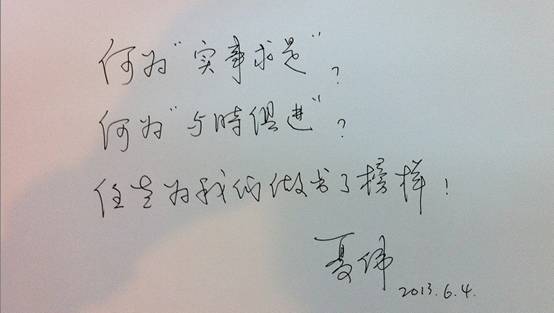 何为"实事求是"？
何为"与时俱进"？
任老为我们做出了榜样！
夏伟
2013.6.4.